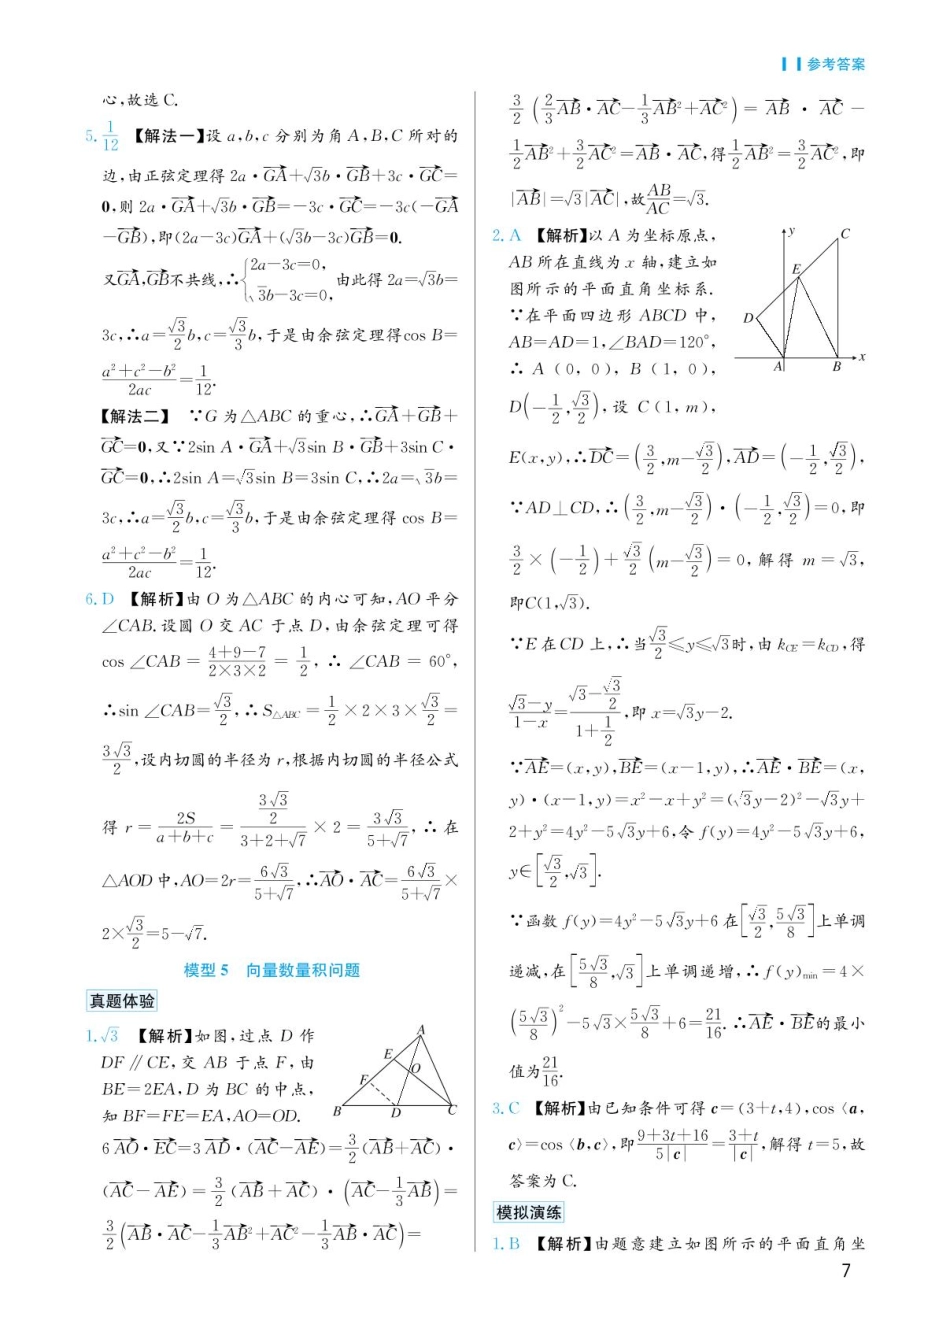 参考答案
心,故选 C.
5. 1/12 【解法一】设 a,b,c 分别为角 A,B,C 所对的
边,由正弦定理得 2a·GA→+√3b·GB→+3c·GC→=
0,则 2a·GA→+√3b·GB→=-3c·GC→=-3c(-GA→
-GB→),即(2a-3c)GA→+(√3b-3c)GB→=0.
又GA→,GB→不共线,∴{2a-3c=0, √3b-3c=0, 由此得 2a=√3b=
3c,∴a=√3/2 b,c=√3/3 b,于是由余弦定理得cos B=
(a²+c²-b²)/2ac=1/12.
【解法二】 ∵G 为△ABC 的重心,∴GA→+GB→+
GC→=0,又∵2sin A·GA→+√3sin B·GB→+3sin C·
GC→=0,∴2sin A=√3sin B=3sin C,∴2a=√3b=
3c,∴a=√3/2 b,c=√3/3 b,于是由余弦定理得 cos B=
(a²+c²-b²)/2ac=1/12.
6. D 【解析】由 O 为△ABC 的内心可知,AO 平分
∠CAB.设圆 O 交 AC 于点 D,由余弦定理可得
cos ∠CAB=(4+9-7)/(2×3×2)=1/2,∴∠CAB=60°,
∴sin ∠CAB=√3/2,∴S△ABC=1/2×2×3×√3/2=
3√3/2,设内切圆的半径为 r,根据内切圆的半径公式
得 r=2S/(a+b+c)=(3√3/2)/(3+2+√7)×2=3√3/(5+√7),∴在
△AOD 中,AO=2r=6√3/(5+√7),∴AO→·AC→=6√3/(5+√7)×
2×√3/2=5-√7.
模型 5 向量数量积问题
真题体验
1. √3 【解析】如图,过点 D 作
DF∥CE,交 AB 于点 F,由
BE=2EA,D 为 BC 的中点,
知 BF=FE=EA,AO=OD.
A
E
O
F
B
D
C
6AO→·EC→=3AD→·(AC→-AE→)=3/2(AB→+AC→)·
(AC→-AE→)=3/2(AB→+AC→)·(AC→-1/3AB→)=
3/2(AB→·AC→-1/3AB→²+AC→²-1/3AB→·AC→)=
3/2(2/3AB→·AC→-1/3AB→²+AC→²)=AB→·AC→-
1/2AB→²+3/2AC→²=AB→·AC→,得1/2AB→²=3/2AC→²,即
|AB→|=√3|AC→|,故AB/AC=√3.
2. A 【解析】以 A 为坐标原点,
AB 所在直线为 x 轴,建立如
图所示的平面直角坐标系.
∵在平面四边形 ABCD 中,
AB=AD=1,∠BAD=120°,
∴A(0,0),B(1,0),
D(-1/2,√3/2),设 C(1,m),
y
C
E
D
A
B
x
E(x,y),∴DC→=(3/2,m-√3/2),AD→=(-1/2,√3/2),
∵AD⊥CD,∴(3/2,m-√3/2)·(-1/2,√3/2)=0,即
3/2×(-1/2)+√3/2(m-√3/2)=0,解得 m=√3,
即C(1,√3).
∵E 在 CD 上,∴当√3/2≤y≤√3时,由 kCE=kCD,得
(√3-y)/(1-x)=(√3-√3/2)/(1+1/2),即 x=√3y-2.
∵AE→=(x,y),BE→=(x-1,y),∴AE→·BE→=(x,
y)·(x-1,y)=x²-x+y²=(√3y-2)²-√3y+
2+y²=4y²-5√3y+6,令 f(y)=4y²-5√3y+6,
y∈[√3/2,√3].
∵函数 f(y)=4y²-5√3y+6 在[√3/2,5√3/8]上单调
递减,在[5√3/8,√3]上单调递增,∴f(y)min=4×
(5√3/8)²-5√3×5√3/8+6=21/16.∴AE→·BE→的最小
值为21/16.
3. C 【解析】由已知条件可得 c=(3+t,4),cos〈a,
c〉=cos〈b,c〉,即(9+3t+16)/5|c|=(3+t)/|c|,解得 t=5,故
答案为 C.
模拟演练
1. B 【解析】由题意建立如图所示的平面直角坐
7